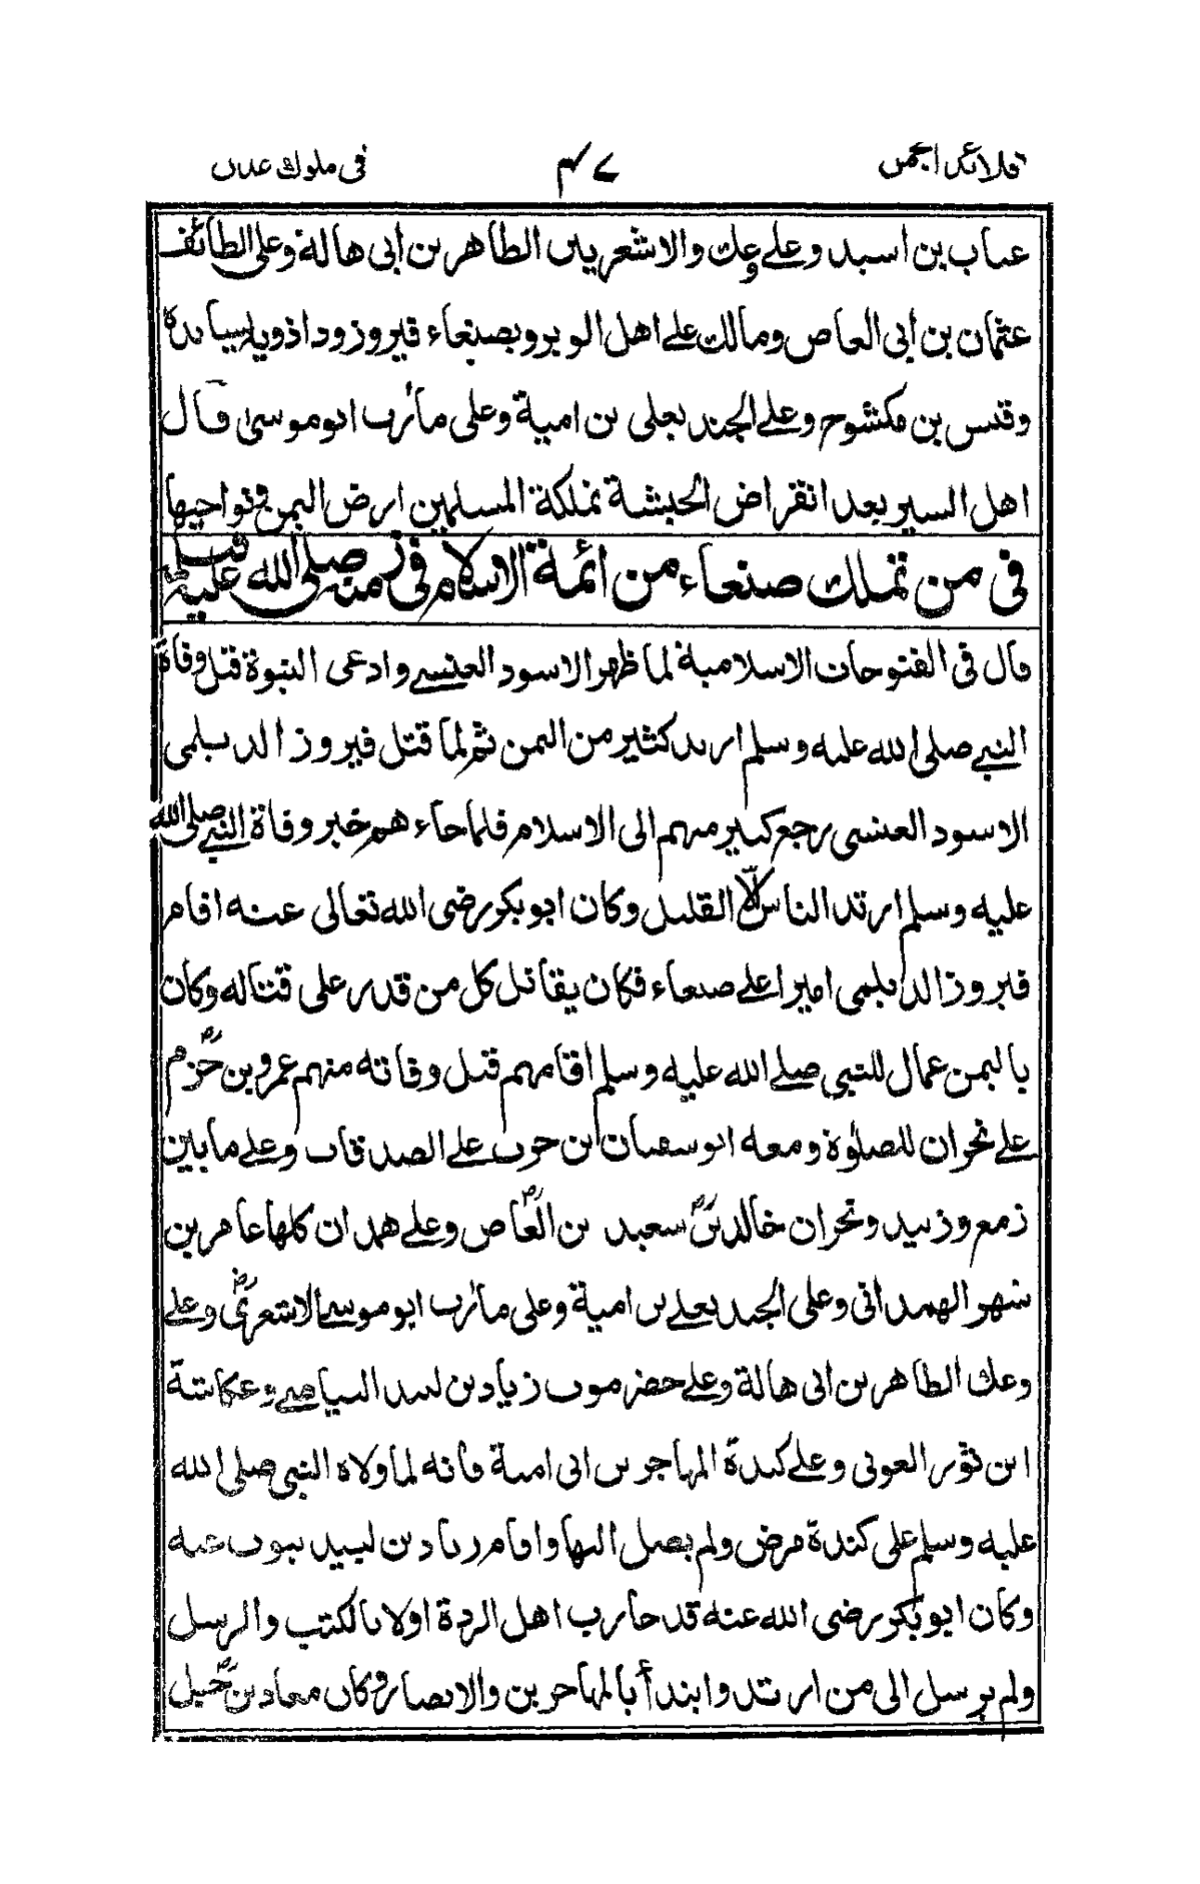 قلائد الجمن ۴۷ فى ملوك عدن
عتاب بن اسيد وعلى وعك والاشعريين الطاهر بن ابى هالة وعلى الطائف
عثمان بن ابى العاص ومالك على اهل الوبر وبصنعاء فيروز وداذويه يسانده
وقيس بن مكشوح وعلى الجند يعلى بن امية وعلى مأرب ابو موسى قال
اهل السير بعد انقراض الحبشة تملكة المسلمين ارض اليمن ونواحيها
فى من تملك صنعاء من ائمة الاسلام فى زمنه صلى الله عليه
قال فى الفتوحات الاسلامية لما ظهر الاسود العنسى وادعى النبوة قبل وفاة
النبى صلى الله عليه وسلم ارتد كثير من اليمن ثم لما قتل فيروز الديلمى
الاسود العنسى رجع كثير منهم الى الاسلام فلما جاءهم خبر وفاة النبى صلى الله
عليه وسلم ارتد الناس الا القليل وكان ابو بكر رضى الله تعالى عنه اقام
فيروز الديلمى اميرا على صنعاء فكان يقاتل كل من قدر على قتاله وكان
باليمن عمال للنبى صلى الله عليه وسلم اقامهم قبل وفاته منهم عمرو بن حزم
على نجران للصلوة ومعه ابو سفيان ابن حرب على الصدقات وعلى ما بين
زمع وزبيد ونجران خالد بن سعيد بن العاص وعلى همدان كلها عامر بن
شهر الهمدانى وعلى الجند يعلى بن امية وعلى مأرب ابو موسى الاشعرى وعلى
وعك الطاهر بن ابى هالة وعلى حضرموت زياد بن لبيد البياضى وعكاشة
ابن ثور الغوثى وعلى كندة المهاجر بن ابى امية فانه لما ولاه النبى صلى الله
عليه وسلم على كندة مرض ولم يصل اليها واقام زياد بن لبيد ينوب عنه
وكان ابو بكر رضى الله عنه قد حارب اهل الردة اولا بالكتب والرسل
ولم يرسل الى من ارتد وابتدأ بالمهاجرين والانصار وكان معاذ بن جبل